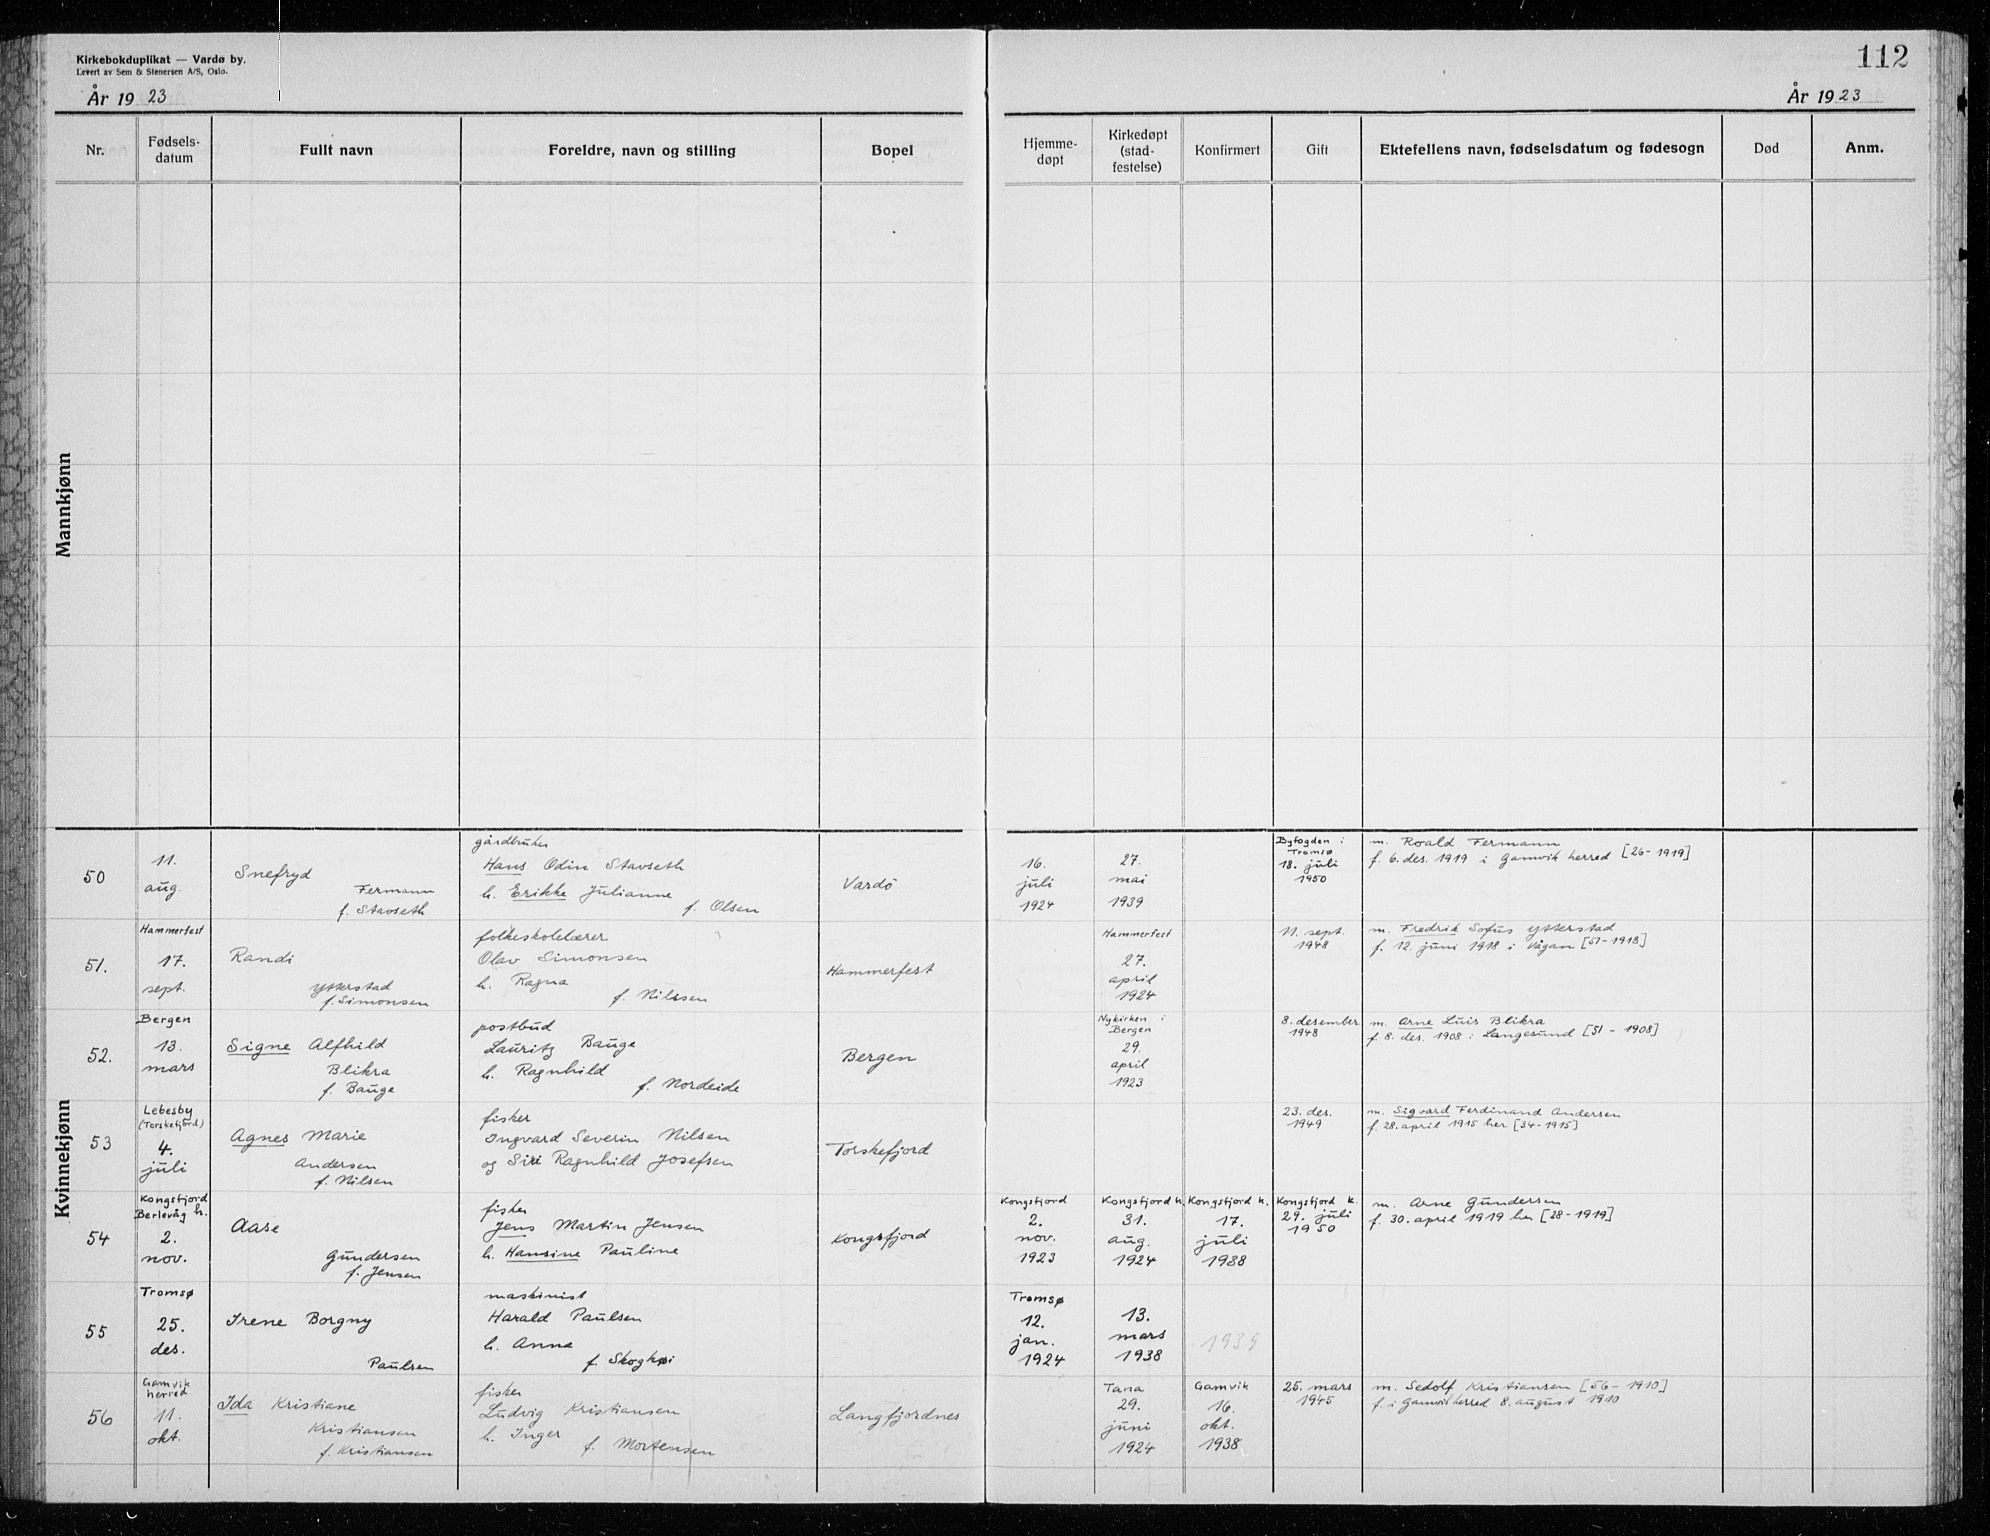 Kirkebokduplikat — Vardø by.
Levert av Sem & Stenersen A/S, Oslo.
År 19 23
112
År 19 23
Nr.
Fødsels-
datum
Fullt navn
Foreldre, navn og stilling
Bopel
Hjemme-
døpt
Kirkedøpt
(stad-
festelse)
Konfirmert
Gift
Ektefellens navn, fødselsdatum og fødesogn
Død
Anm.
Mannkjønn
Kvinnekjønn
50
11.
aug.
Snefryd
Fermann
f. Stavseth
gårdbruker
Hans Odin Stavseth
h. Erikke Julianne
f. Olsen
Vardö
16.
juli
1924
27.
mai
1939
Byfogden i
Tromsø
18. juli
1950
m. Roald Fermann
f. 6. des. 1919 i Gamvik herred [26-1919]
51.
Hammerfest
17.
sept.
Randi
Ytterstad
f. Simonsen
folkeskolelærer
Olav Simonsen
h. Ragna
f. Nilssen
Hammerfest
Hammerfest
27.
april
1924
11. sept.
1948
m. Fredrik Sofus Ytterstad
f. 12. juni 1918 i Vågan [51-1918]
52.
Bergen
13.
mars
Signe Alfhild
Blikra
f. Bauge
postbud
Lauritz Bauge
h. Ragnhild
f. Nordeide
Bergen
Nykirken i
Bergen
29.
april
1923
8. desember
1948
m. Arne Luis Blikra
f. 8. des. 1908 i Langesund [51 - 1908]
53
Lebesby
(Torskefjord)
4.
juli
Agnes Marie
Andersen
f. Nilsen
fisker
Ingvard Severin Nilsen
og Siri Ragnhild Josefsen
Torskefjord
23. des.
1949
m. Sigvard Ferdinand Andersen
f. 28. april 1915 her [34-1915]
54
Kongsfjord
Berlevåg h.
2.
nov.
Aase
Gundersen
f. Jensen
fisker
Jens Martin Jensen
h. Hansine Pauline
Kongsfjord
Kongsfjord
2.
nov.
1923
Kongsfjord k.
31.
aug.
1924
Kongsfjord k.
17.
juli
1938
Kongsfjord k.
29. juli
1950
m. Arne Gundersen
f. 30. april 1919 her [28-1919]
55
Tromsø
25.
des.
Irene Borgny
Paulsen
maskinist
Harald Paulsen
h. Anna
f. Skoghøi
Tromsø
12.
jan.
1924
13.
mars
1938
56
Gamvik
herred
11.
okt.
Ida Kristiane
Kristiansen
f. Kristiansen
fisker
Ludvig Kristiansen
h. Inger
f. Mortensen
Langfjordnes
Tana
29.
juni
1924
Gamvik
16.
okt.
1938
25. mars
1945
m. Sedolf Kristiansen [56 - 1910]
f. i Gamvik herred 8. august 1910